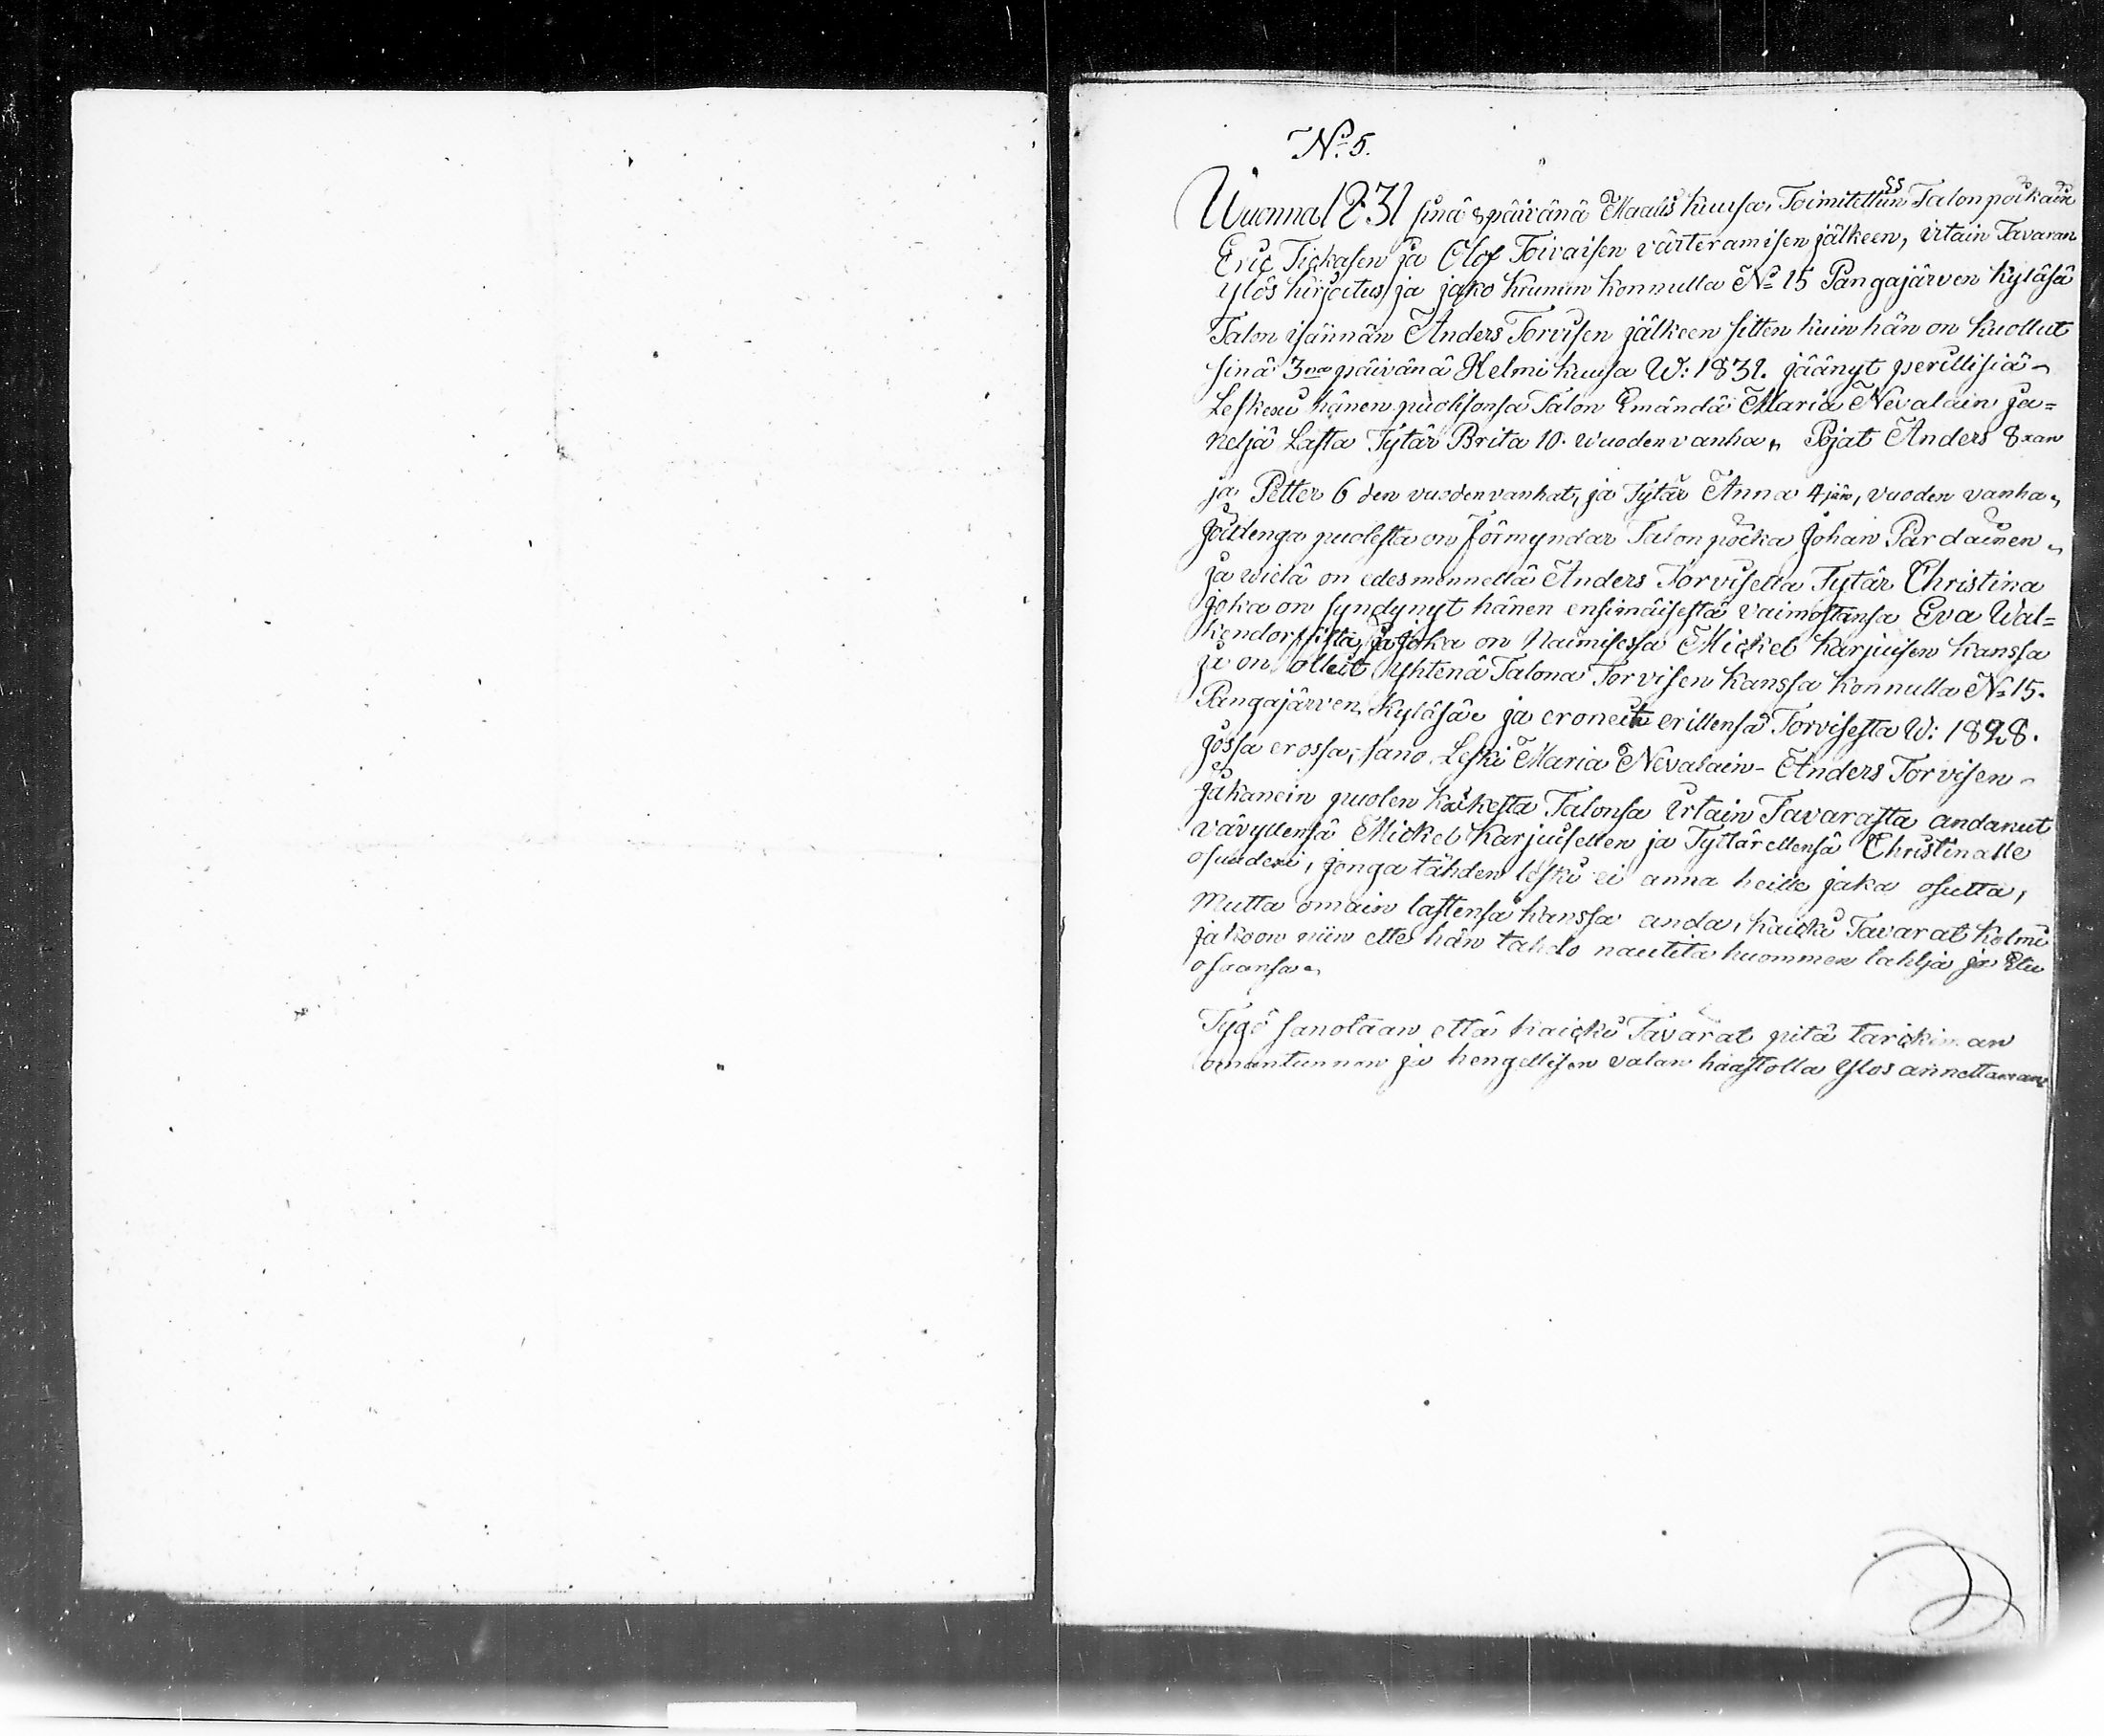 No 5.
Wuonna 1831 sinä 9 päivänä Maalis kuusa, Toimitettiin Talonpoikain
Eric Tickasen ja Olof Toivaisen värteramisen jälkeen, irtain Tavaran
ylös kirjoitus ja jako Krunun Konnulla No 15 Pangajärven Kyläsä
Talon isännän Anders Torvisen jälkeen sitten kuin hän on kuollut
sinä 3na päivänä Helmi kuusa W: 1831. jäänyt perillisiä
Leskexi hänen puolisonsa Talon Emändä Maria Nevalain ja=
neljä Lasta Tytär Brita 10. wuoden vanha, Pojat Anders 8xan
ja Petter 6 den vuoden vanhat, ja Tytär Anna 4 jän, vuoden vanha,
joidenga puolesta on Förmyndar Talonpoika Johan Pardainen,
ja wielä on edesmennellä Anders Torvisella Tytär Christina
joka on syndynyt hänen ensimäisestä vaimostansa Eva Wal=
kendorffista, ja joka on Naimisessa Mickel Karjuisen kanssa
ja on olleit Yhtenä Talona Torvisen kanssa Konnulla No 15.
Pangajärven Kyläsä, ja eroneit erillensä Torvisesta W: 1828.
jossa erossa, sano Leski Maria Nevalain - Anders Torvisen
jakanein puolen kaikesta Talonsa Irtain Tavarasta andanut
vävyllensä Mickel Karjuisellen ja Tyttärellensä Christinalle
osuudexi, jonga tähden leski ei anna heille jaka osutta,
Mutta omain lastensa kanssa anda, kaicki Tavarat Kolmi
jakoon niin ette hän tahdo nautita huommen lahja ja Etu
osaansa.
Tygö sanotaan että kaicki Tavarat pitä tarckiman
omantunnon ja hengellisen valan haastolla Ylos annettaman